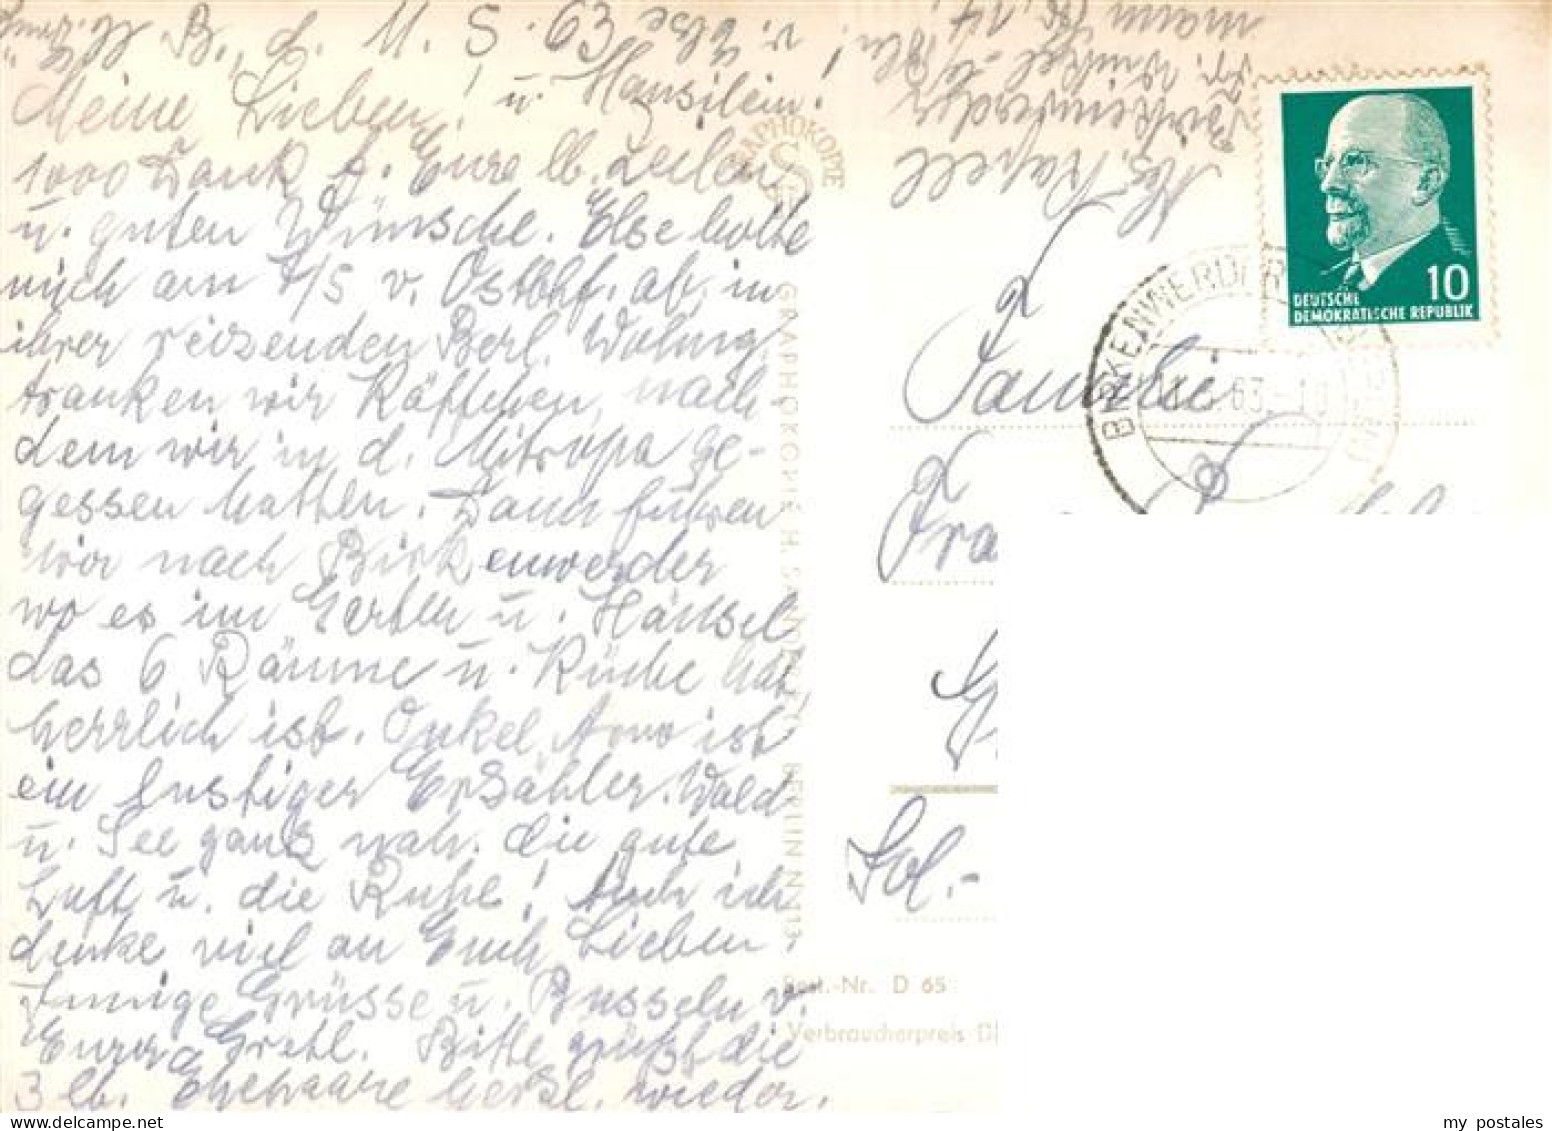 B., d. 11. 5. 63
Meine Lieben! u. Hansilein.
1000 Dank f. Eure lb. Zeilen
u. guten Wünsche. Else holte
mich am 7/5 v. Ostbhf. ab, in
ihrer reizenden Berl. Wohng.
tranken wir Käffchen, nach-
dem wir in d. Mitropa ge-
gessen hatten. Dann fuhren
wir nach Birkenwerder
wo es im Garten u. Häusel
das 6 Räume u. Küche hat
herrlich ist. Onkel Arno ist
ein lustiger Erzähler. Wald
u. See ganz nah. die gute
Luft u. die Ruhe! Auch ich
denke viel an Euch Lieben.
Innige Grüsse u. Busseln v.
Eurer Gretl. Bitte grüßt die
3 lb. Ehepaare herzl. wieder.
v. Else
GRAPHOKOPIE
GRAPHOKOPIE H. SANDER BERLIN N 113
Abs. Kapell
Birkenwerder
b. Bln.
DEUTSCHE
DEMOKRATISCHE REPUBLIK
10
BIRKENWERDER
63.-10
Familie
Best.-Nr. D 65
Verbraucherpreis D
my postales